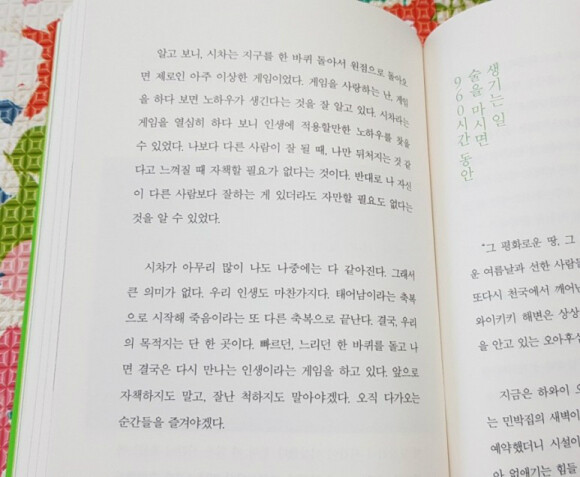 알고 보니, 시차는 지구를 한 바퀴 돌아서 원점으로 돌아오
면 제로인 아주 이상한 게임이었다. 게임을 사랑하는 난, 게임
을 하다 보면 노하우가 생긴다는 것을 잘 알고 있다. 시차라는
게임을 열심히 하다 보니 인생에 적용할만한 노하우를 찾을
수 있었다. 나보다 다른 사람이 잘 될 때, 나만 뒤처지는 것 같
다고 느껴질 때 자책할 필요가 없다는 것이다. 반대로 나 자신
이 다른 사람보다 잘하는 게 있더라도 자만할 필요도 없다는
것을 알 수 있었다.
시차가 아무리 많이 나도 나중에는 다 같아진다. 그래서
큰 의미가 없다. 우리 인생도 마찬가지다. 태어남이라는 축복
으로 시작해 죽음이라는 또 다른 축복으로 끝난다. 결국, 우리
의 목적지는 단 한 곳이다. 빠르던, 느리던 한 바퀴를 돌고 나
면 결국은 다시 만나는 인생이라는 게임을 하고 있다. 앞으로
자책하지도 말고, 잘난 척하지도 말아야겠다. 오직 다가오는
순간들을 즐겨야겠다.
960시간 동안
술을 마시면
생기는 일
"그 평화로운 땅, 그
운 여름날과 선한 사람들
또다시 천국에서 깨어
와이키키 해변은 상상
을 안고 있는 오아후섬
지금은 하와이 오
는 민박집의 새벽이
예약했더니 시설이
아 없애기는 힘들